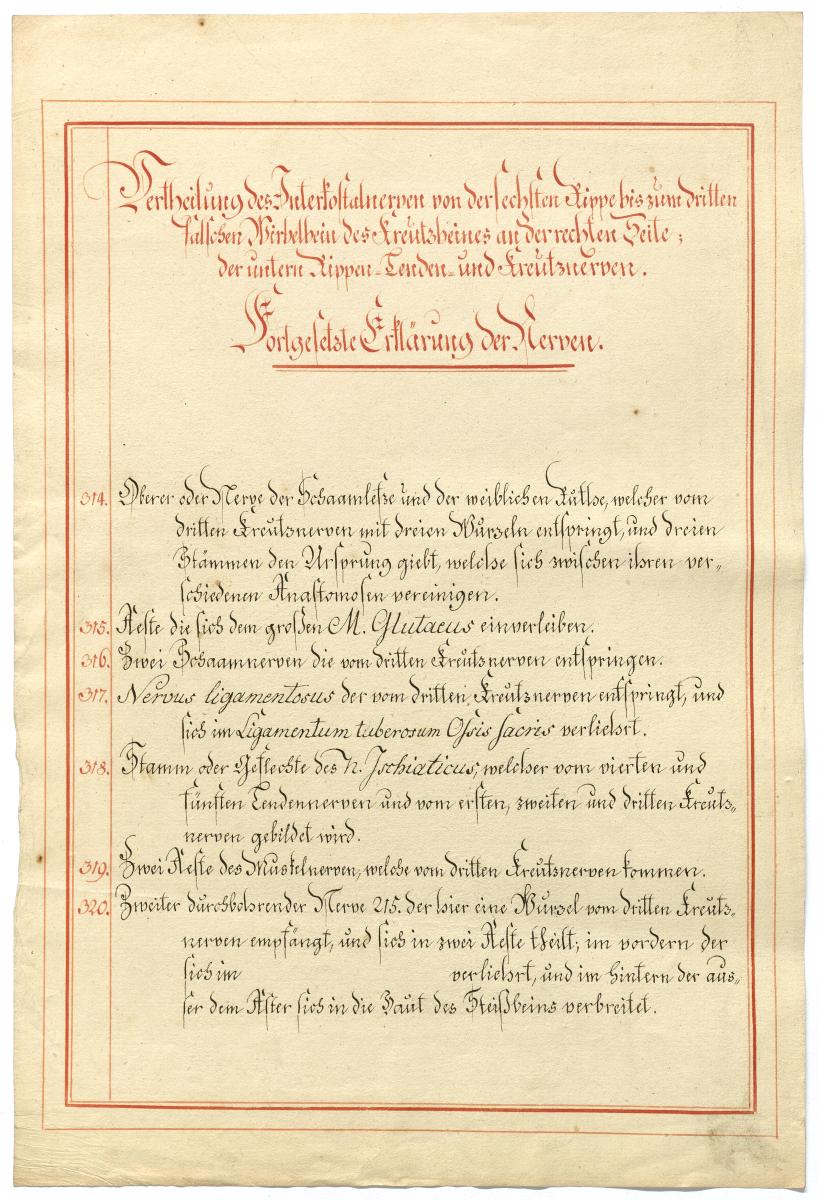 Vertheilung des Interkostalnerven von der sechsten Rippe bis zum dritten
falschen Wirbelbein des Kreutzbeines an der rechten Seite;
der untern Rippen-Lenden- und Kreutznerven.
Fortgesetzte Erklärung der Nerven.
314. Oberer oder Nerve der Schaamlefze und der weiblichen Ruthe, welcher vom
dritten Kreutznerven mit dreien Wurzeln entspringt, und dreien
Stämmen den Ursprung giebt, welche sich zwischen ihren ver-
schiedenen Anastomosen vereinigen.
315. Aeste die sich dem großen M. Glutaeus einverleiben.
316. Zwei Schaamnerven die vom dritten Kreutznerven entspringen.
317. Nervus ligamentosus der vom dritten Kreutznerven entspringt, und
sich im Ligamentum tuberosum Ossis sacris verliehrt.
318. Stamm oder Geflechte des N. Ischiaticus, welcher vom vierten und
fünften Lendennerven und vom ersten, zweiten und dritten Kreutz-
nerven gebildet wird.
319. Zwei Aeste des Muskelnerven, welche vom dritten Kreutznerven kommen.
320. Zweiter durchbohrender Nerve 215. der hier eine Wurzel vom dritten Kreutz-
nerven empfängt, und sich in zwei Aeste theilt; im vordern der
sich im verliehrt, und im hintern der aus-
ser dem After sich in die Haut des Steißbeins verbreitet.